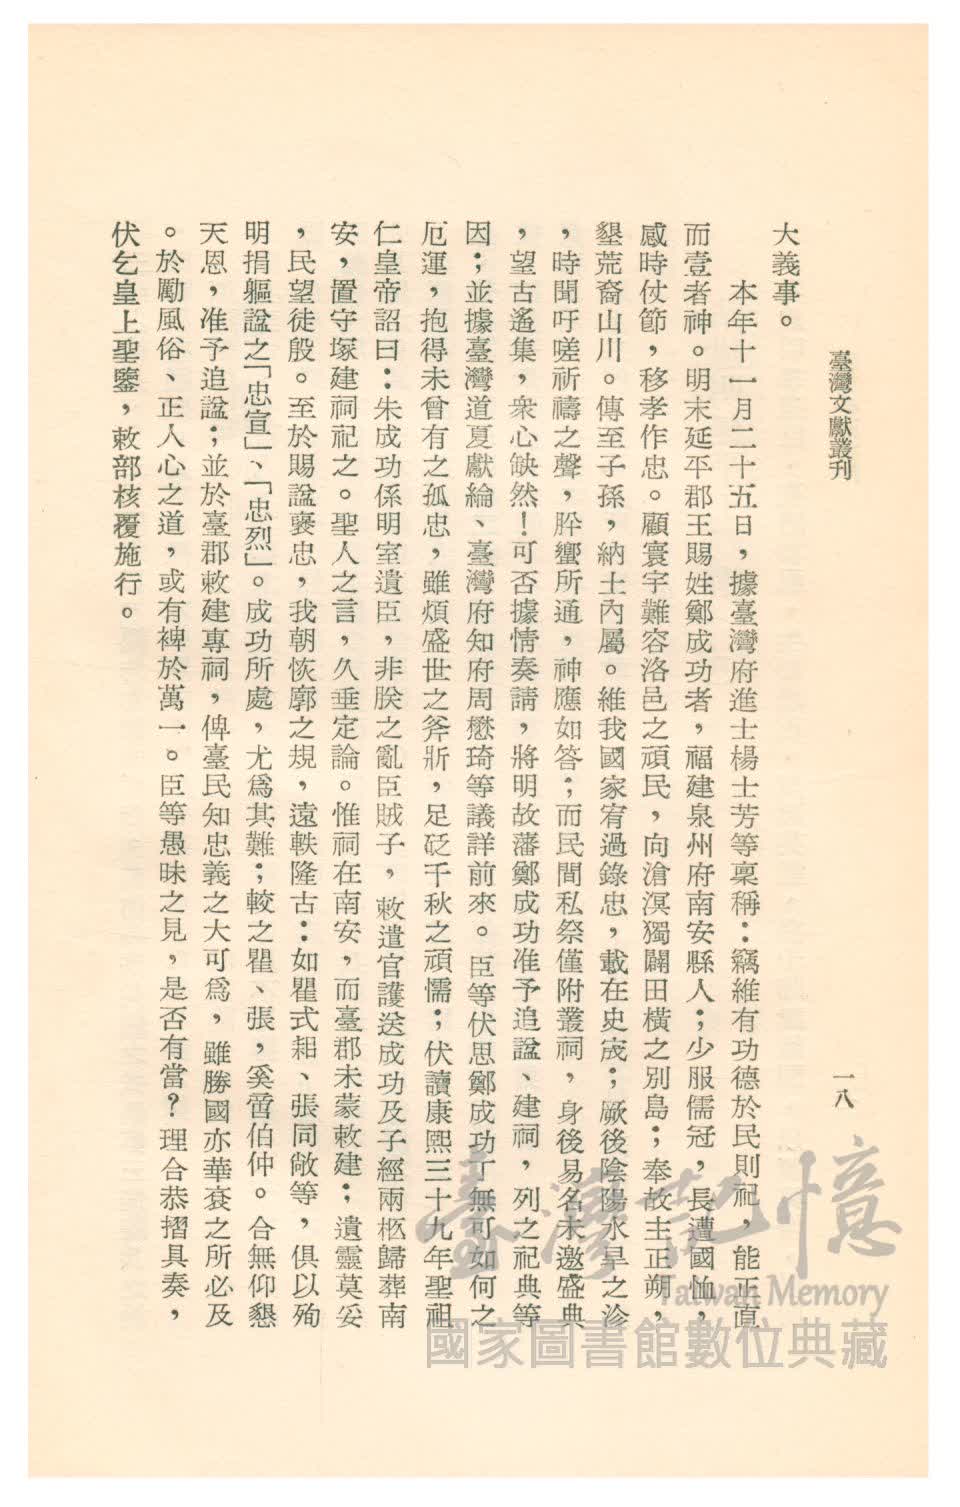 臺灣文獻叢刊
一八
大義事。
本年十一月二十五日，據臺灣府進士楊士芳等稟稱：竊維有功德於民則祀，能正直
而壹者神。明末延平郡王賜姓鄭成功者，福建泉州府南安縣人；少服儒冠，長遭國恤，
感時仗節，移孝作忠。顧寰宇難容洛邑之頑民，向滄溟獨闢田橫之別島；奉故主正朔，
墾荒裔山川。傳至子孫，納土內屬。維我國家宥過錄忠，載在史宬；厥後陰陽水旱之沴
，時聞吁嗟祈禱之聲，肸蠁所通，神應如答；而民間私祭僅附叢祠，身後易名未邀盛典
，望古遙集，衆心缺然！可否據情奏請，將明故藩鄭成功准予追諡、建祠，列之祀典等
因；並據臺灣道夏獻綸、臺灣府知府周懋琦等議詳前來。臣等伏思鄭成功丁無可如何之
厄運，抱得未曾有之孤忠，雖煩盛世之斧斨，足砭千秋之頑懦；伏讀康熙三十九年聖祖
仁皇帝詔曰：朱成功係明室遺臣，非朕之亂臣賊子，敕遣官護送成功及子經兩柩歸葬南
安，置守塚建祠祀之。聖人之言，久垂定論。惟祠在南安，而臺郡未蒙敕建；遺靈莫妥
，民望徒殷。至於賜諡褒忠，我朝恢廓之規，遠軼隆古：如瞿式耜、張同敞等，俱以殉
明捐軀諡之「忠宣」、「忠烈」。成功所處，尤爲其難；較之瞿、張，奚啻伯仲。合無仰懇
天恩，准予追諡；並於臺郡敕建專祠，俾臺民知忠義之大可爲，雖勝國亦華衮之所必及
。於勵風俗、正人心之道，或有裨於萬一。臣等愚昧之見，是否有當？理合恭摺具奏，
伏乞皇上聖鑒，敕部核覆施行。
臺灣記憶
Taiwan Memory
國家圖書館數位典藏